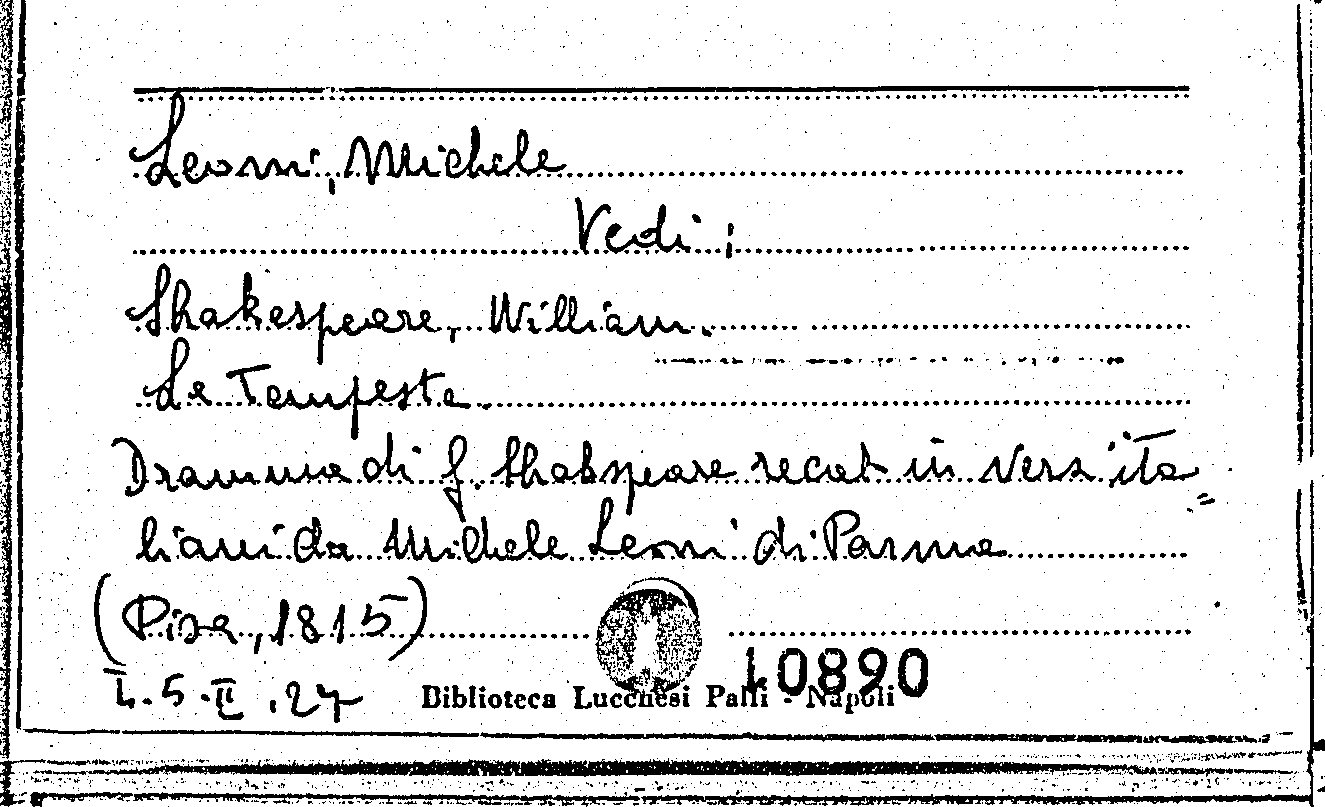 Leoni, Michele
Vedi:
Shakespeare, William.
La Tempesta.
Dramma di G. Shakspeare recat in versi ita=
liani da Michele Leoni di Parma
(Pisa, 1815)
L.5.II.27
10890
Biblioteca Lucchesi Palli - Napoli